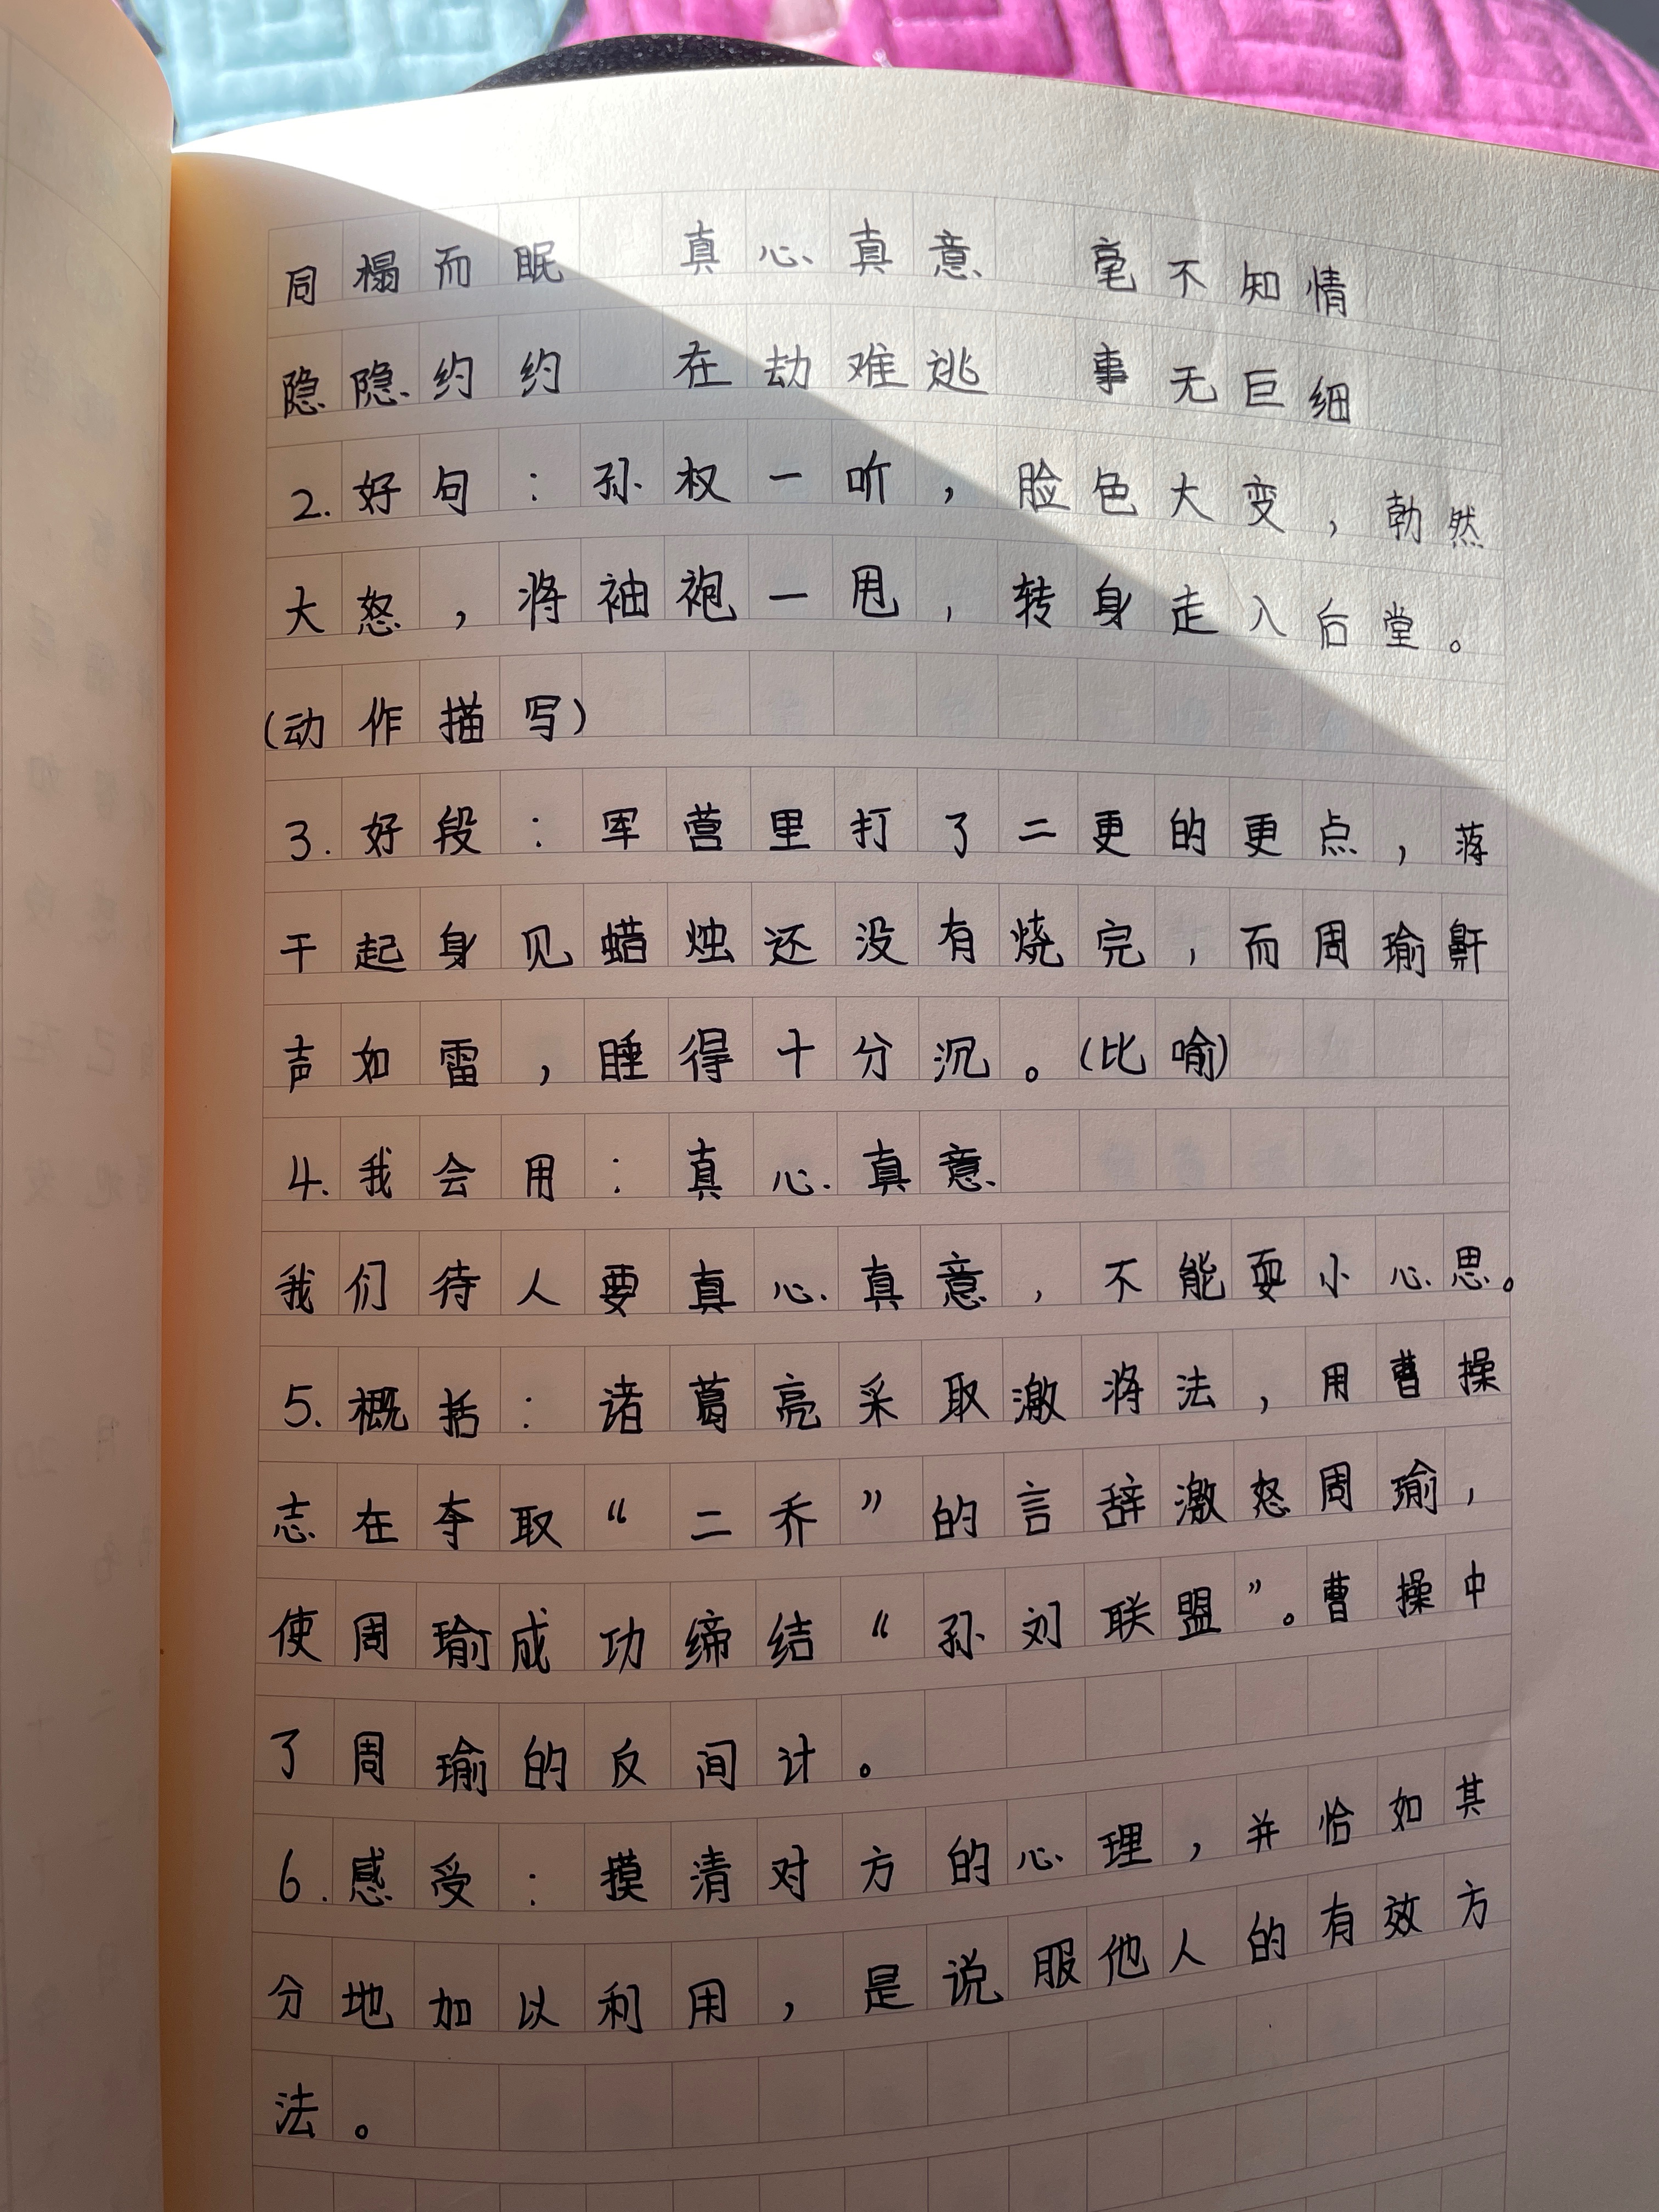 同榻而眠 真心真意 毫不知情
隐隐约约 在劫难逃 事无巨细
2.好句：孙权一听，脸色大变，勃然
大怒，将袖袍一甩，转身走入后堂。
(动作描写)
3.好段：军营里打了二更的更点，蒋
干起身见蜡烛还没有烧完，而周瑜鼾
声如雷，睡得十分沉。(比喻)
4.我会用：真心真意
我们待人要真心真意，不能耍小心思。
5.概括：诸葛亮采取激将法，用曹操
志在夺取“二乔”的言辞激怒周瑜，
使周瑜成功缔结“孙刘联盟”。曹操中
了周瑜的反间计。
6.感受：摸清对方的心理，并恰如其
分地加以利用，是说服他人的有效方
法。